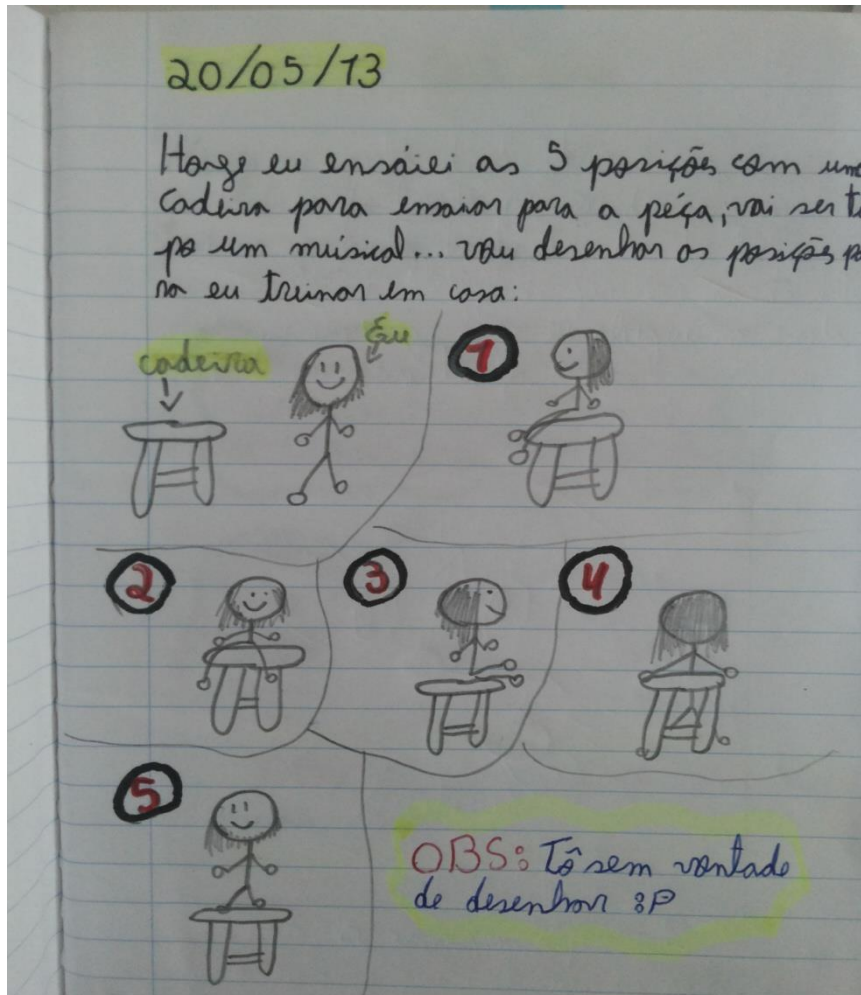 20/05/13
Honge eu ensáiei as 5 posições com uma
cadeira para ensaiar para a péça, vai ser ti
po um músical... vou desenhar as posições pa
ra eu treinar em casa:
cadeira
Eu
1
2
3
4
5
OBS: Tô sem vontade
de desenhar :P